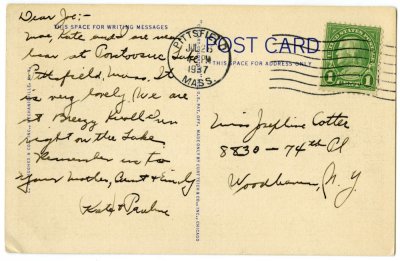 Dear Jo:-
THIS SPACE FOR WRITING MESSAGES
Mae, Kate and I are near
here at Pontoosuc Lake
Pittsfield, Mass. It
is very lovely. We are
at Breezy Knoll Inn
right on the Lake.
Remember us to
your Mother, Aunt & family
Kate & Pauline
PITTSFIELD
JUL
PM
1937
MASS.
POST CARD
THIS SPACE FOR ADDRESS ONLY
UNITED STATES
1 CENT 1
Miss Josephine Cotter
8830 - 74th Pl
Woodhaven, N.Y.